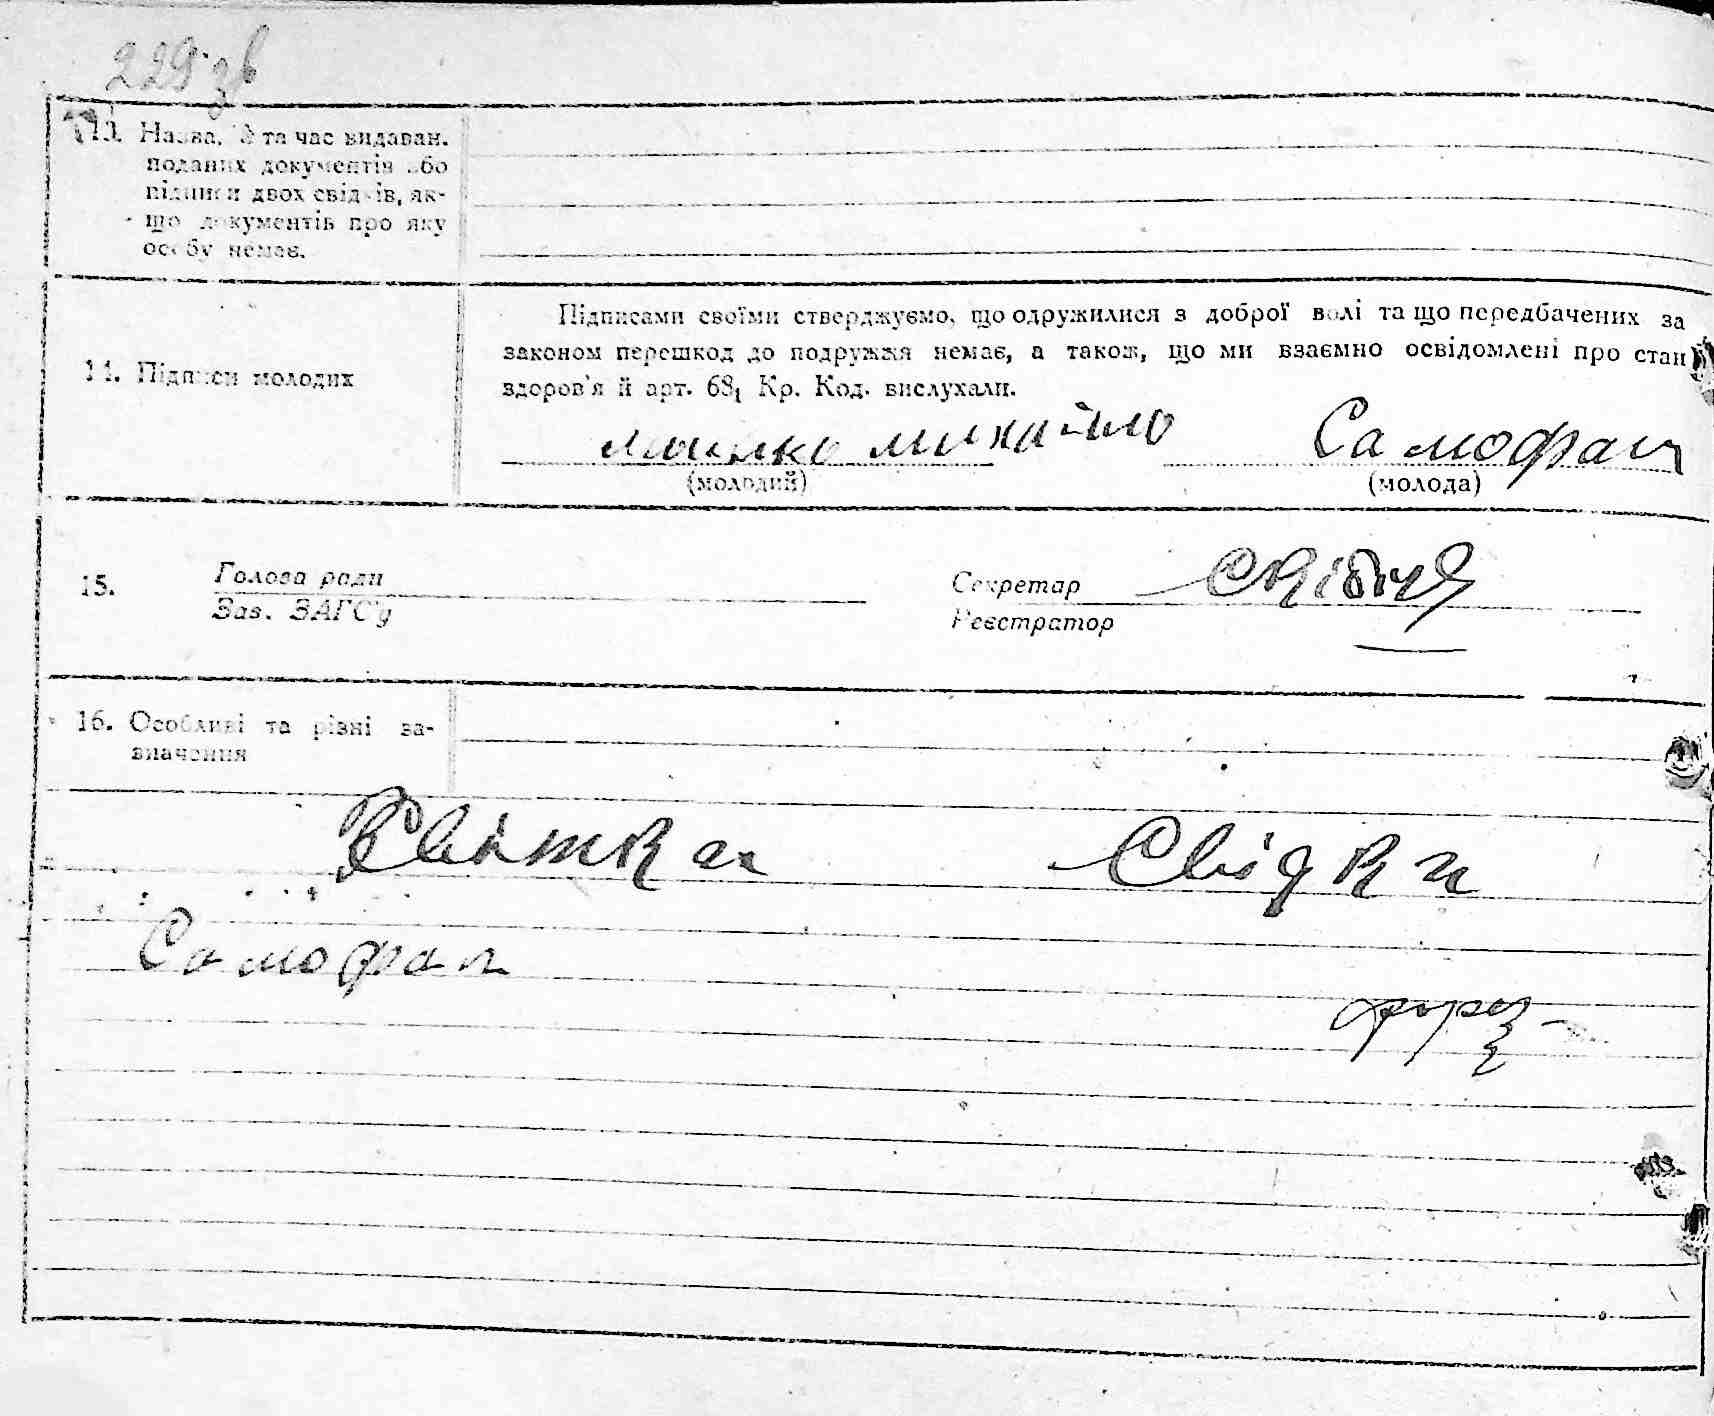 229 зв
13. Назва, № та час видаван.
поданих документів або
підписи двох свідків, як-
що документів про яку
особу немає.
Підписами своїми стверджуємо, що одружилися з доброї волі та що передбачених за
законом перешкод до подружжя немає, а також, що ми взаємно освідомлені про стан
здоров'я й арт. 68₁ Кр. Код. вислухали.
14. Підписи молодих
михайло Самофал
(молодий) (молода)
15. Голова ради Секретар
Зав. ЗАГС'у Реєстратор
16. Особливі та різні за-
значення
Свідки
Самофал